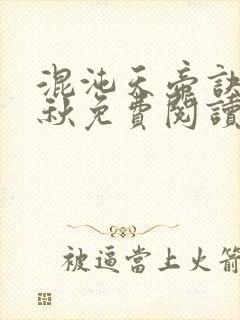 混沌天帝訣
秋免費閱讀
被逼當上火箭